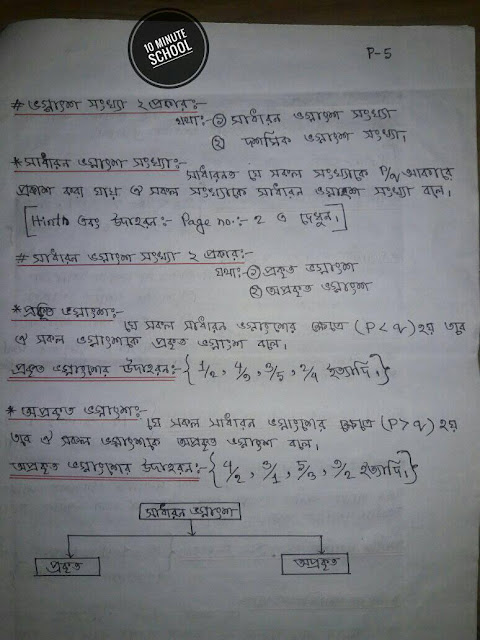 10 MINUTE
SCHOOL
P-5
# ভগ্নাংশ সংখ্যা ২ প্রকার:-
যথা:- ① সাধারন ভগ্নাংশ সংখ্যা
② দশমিক ভগ্নাংশ সংখ্যা।
* সাধারন ভগ্নাংশ সংখ্যা:-
সাধারনত যে সকল সংখ্যাকে P/q আকারে
প্রকাশ করা যায় ঐ সকল সংখ্যাকে সাধারন ভগ্নাংশ সংখ্যা বলে।
[Hints এবং উদাহরন:- Page no:- 2 এ দেখুন।]
# সাধারন ভগ্নাংশ সংখ্যা ২ প্রকার:-
যথা:- ① প্রকৃত ভগ্নাংশ
② অপ্রকৃত ভগ্নাংশ
* প্রকৃত ভগ্নাংশ:-
যে সকল সাধারন ভগ্নাংশের ক্ষেত্রে (P < q) হয় তবে
ঐ সকল ভগ্নাংশকে প্রকৃত ভগ্নাংশ বলে।
প্রকৃত ভগ্নাংশের উদাহরন:- {1/2, 3/5, 2/4 ইত্যাদি।}
* অপ্রকৃত ভগ্নাংশ:-
যে সকল সাধারন ভগ্নাংশের ক্ষেত্রে (P > q) হয়
তবে ঐ সকল ভগ্নাংশকে অপ্রকৃত ভগ্নাংশ বলে।
অপ্রকৃত ভগ্নাংশের উদাহরন:- {4/2, 3/1, 5/3, 3/2 ইত্যাদি।}
সাধারন ভগ্নাংশ
প্রকৃত
অপ্রকৃত